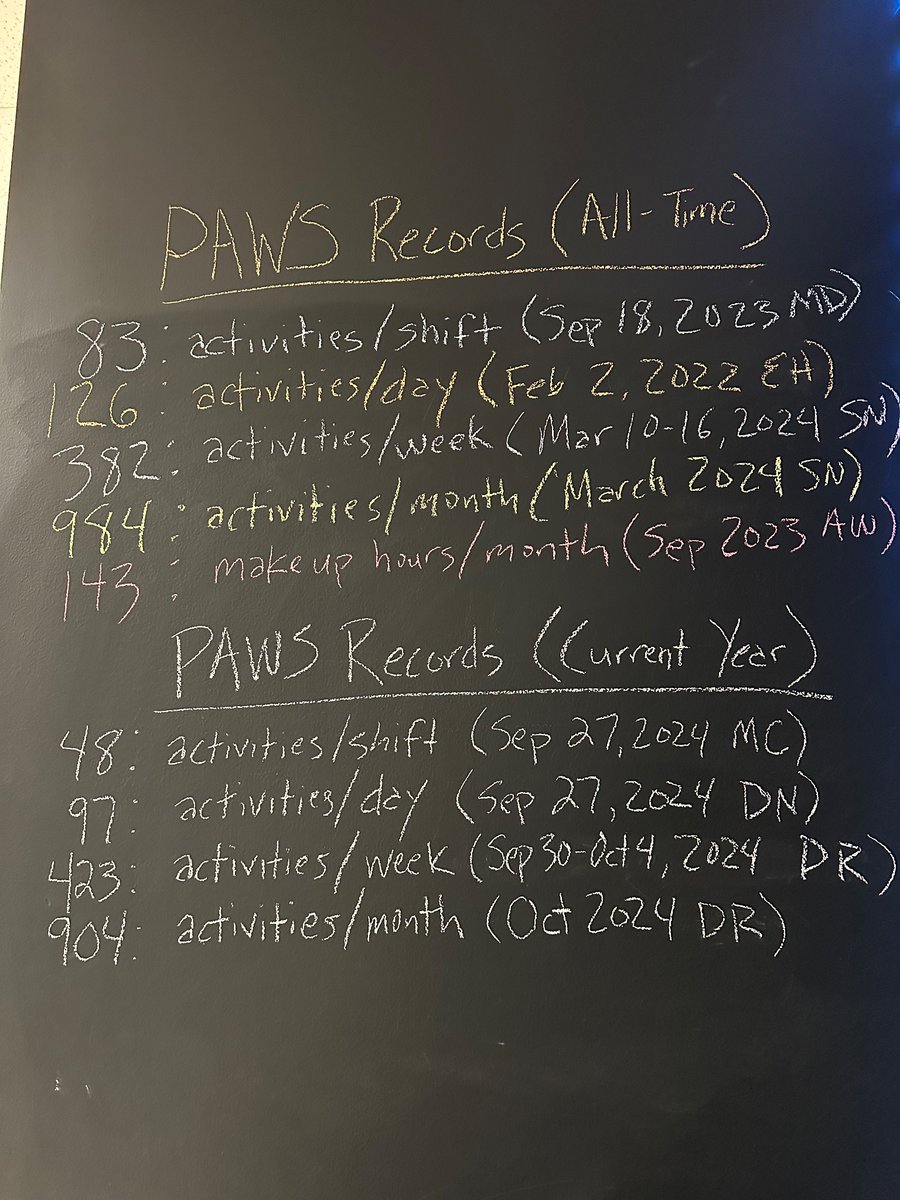 PAWS Records (All-Time)
83: activities/shift (Sep 18, 2023 MD)
126: activities/day (Feb 2, 2022 EH)
382: activities/week (Mar 10-16, 2024 SN)
984: activities/month (March 2024 SN)
143: makeup hours/month (Sep 2023 AW)
PAWS Records (Current Year)
48: activities/shift (Sep 27, 2024 MC)
97: activities/day (Sep 27, 2024 DN)
423: activities/week (Sep 30-Oct 4, 2024 DR)
904: activities/month (Oct 2024 DR)